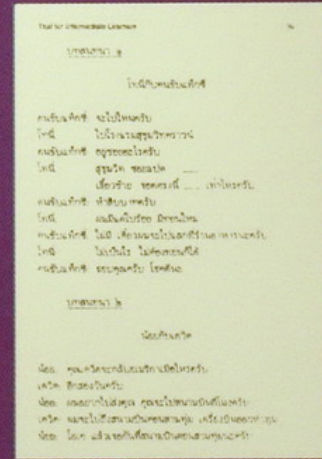 Thai for Intermediate Learners
บทสนทนา ๑
โทนี่กับคนขับแท็กซี่
คนขับแท็กซี่: จะไปไหนครับ
โทนี่: ไปโรงแรมสุขุมวิทคราวน์
คนขับแท็กซี่: อยู่ซอยอะไรครับ
โทนี่: สุขุมวิท ซอยแปด ......
เลี้ยวซ้าย จอดตรงนี้ ...... เท่าไหร่ครับ
คนขับแท็กซี่: ห้าสิบบาทครับ
โทนี่: ผมมีแค่ใบร้อย มีทอนไหม
คนขับแท็กซี่: ไม่มี เดี๋ยวผมจะไปแลกที่ร้านอาหารนะครับ
โทนี่: ไม่เป็นไร ไม่ต้องทอนก็ได้
คนขับแท็กซี่: ขอบคุณครับ โชคดีนะ
บทสนทนา ๒
น้อยกับเดวิด
น้อย: คุณเดวิดจะกลับอเมริกาเมื่อไหร่ครับ
เดวิด: อีกสองวันครับ
น้อย: ผมอยากไปส่งคุณ คุณจะไปสนามบินกี่โมงครับ
เดวิด: ผมจะไปถึงสนามบินตอนสามทุ่ม เครื่องบินออกห้าทุ่ม
น้อย: โอเค แล้วเจอกันที่สนามบินตอนสามทุ่มนะครับ